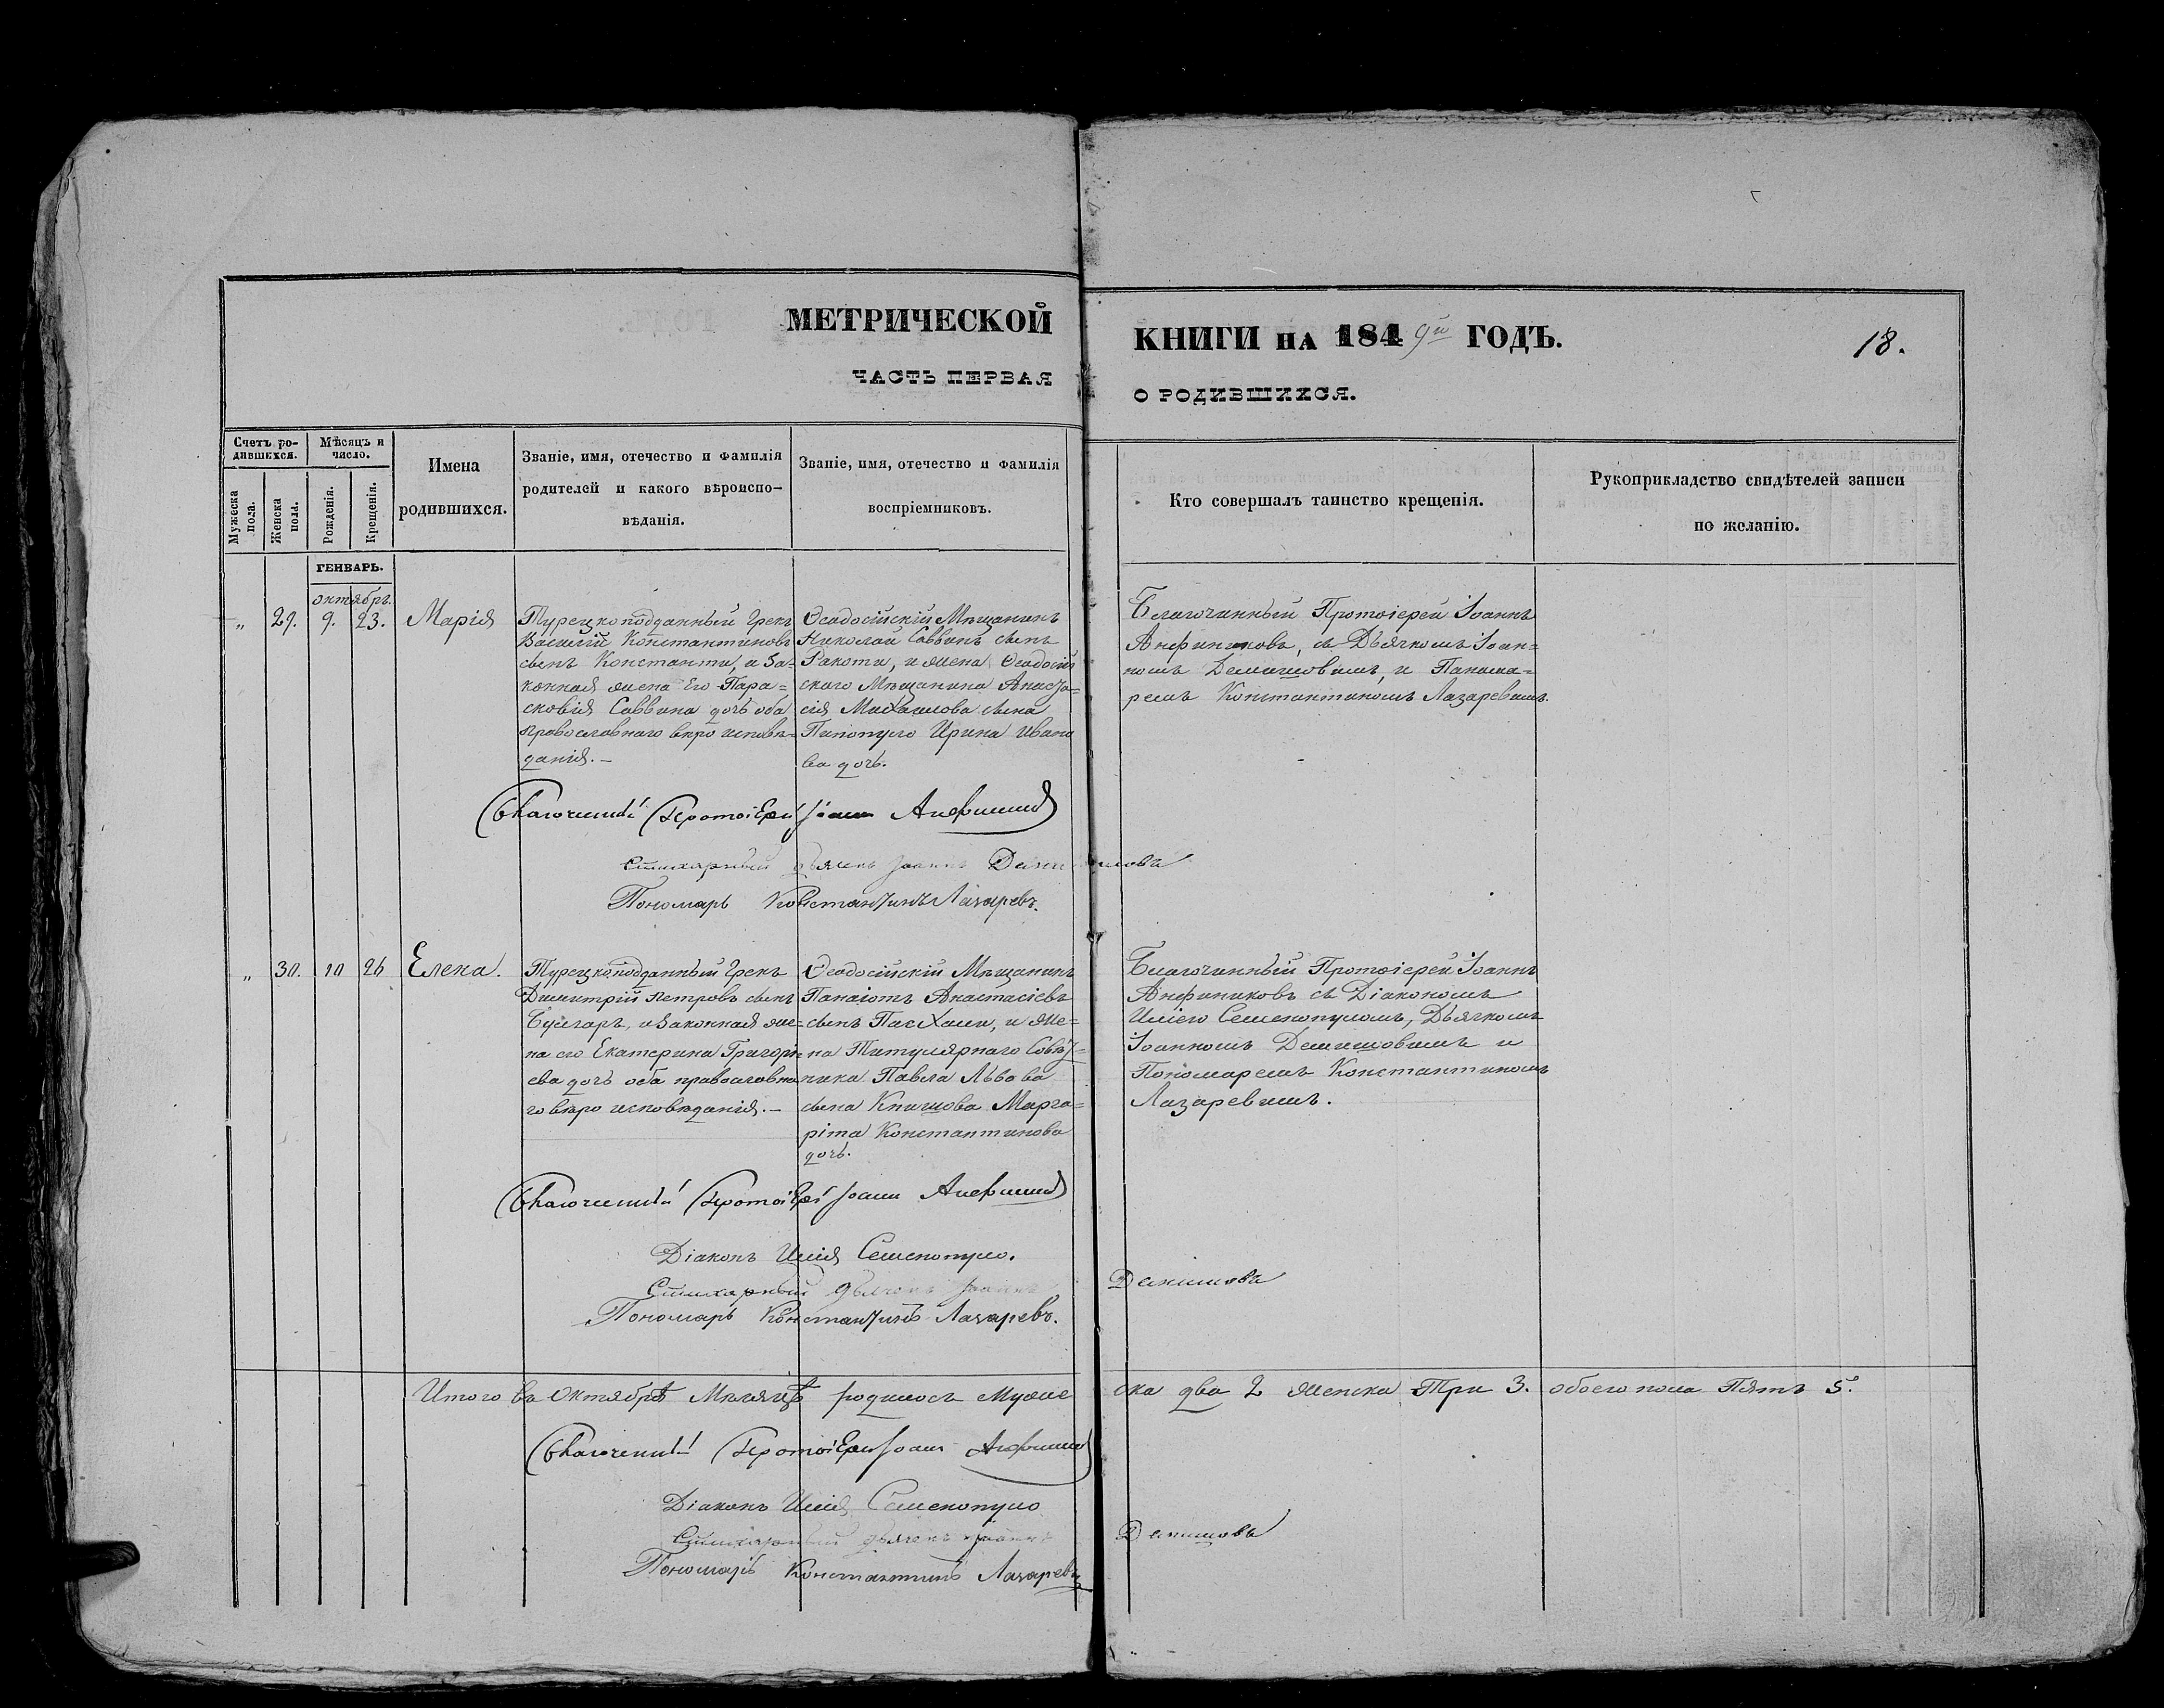 МЕТРИЧЕСКОЙ
ЧАСТЬ ПЕРВАЯ
КНИГИ НА 1849й ГОДЪ.
О РОДИВШИХСЯ.
18.
Счетъ ро-
дившихся.
Мужеска
пола.
Женска
пола.
Мѣсяцъ и
число.
Рожденія.
Крещенія.
Имена
родившихся.
Званіе, имя, отечество и фамилія
родителей и какого вѣроиспо-
вѣданія.
Званіе, имя, отечество и фамилія
воспріемниковъ.
Кто совершалъ таинство крещенія.
Рукоприкладство свидѣтелей записи
по желанію.
ГЕНВАРЬ.
октябрь.
„ 29. 9. 23. Марія
Турецкоподданный Грекъ
Василій Константиновъ
сынъ Константи, и За-
конная жена Его Пара=
сковія Саввина дочь оба
православнаго вѣро исповѣ-
данія.-
Ѳеодосійскій Мѣщанинъ
Николай Саввинъ сынъ
Ракоти, и жена Ѳеодосій
скаго Мѣщанина Анаста=
сія Михаилова сына
Пинопуло Ирина Ивано
ва дочь.
Благочинный Протоіерей Іоаннъ
Анфиниковъ, съ Дьячкомъ Іоан=
номъ Демишовымъ, и Панама=
ремъ Константиномъ Лазаревымъ.
Благочинный Протоіерей Іоаннъ
Стихарный дьячекъ Іоаннъ
Пономарь Константинъ Лазаревъ.
„ 30. 10 26 Елена.
Турецкоподданный Грекъ
Димитрій Петровъ сынъ
Булгаръ, и Законная же=
на его Екатерина Григорі
ева дочь оба православна
го вѣро исповѣданія.-
Ѳеодосійскій Мѣщанинъ
Панаіотъ Анастасіевъ
сынъ Пасхали, и же=
на Титулярнаго Совѣт=
ника Павла Львова
сына Марга=
ріта Константинова
дочь.
Благочинный Протоіерей Іоаннъ
Анфиниковъ съ Діакономъ
Иліею Семенопуломъ, Дьячкомъ
Іоанномъ Демишовымъ и
Пономаремъ Константиномъ
Лазаревымъ.
Благочинный Протоіерей Іоаннъ
Діаконъ Илія Семенопуло.
Стихарный дьячекъ Іоаннъ
Пономарь Константинъ Лазаревъ.
Итого въ Октябрѣ Мѣсяцѣ родилось Мужеска два 2 женска Три 3. обоего пола Пять 5.
Благочинный Протоіерей Іоаннъ
Діаконъ Илія Семенопуло
Стихарный дьячекъ Іоаннъ
Пономарь Константинъ Лазаревъ